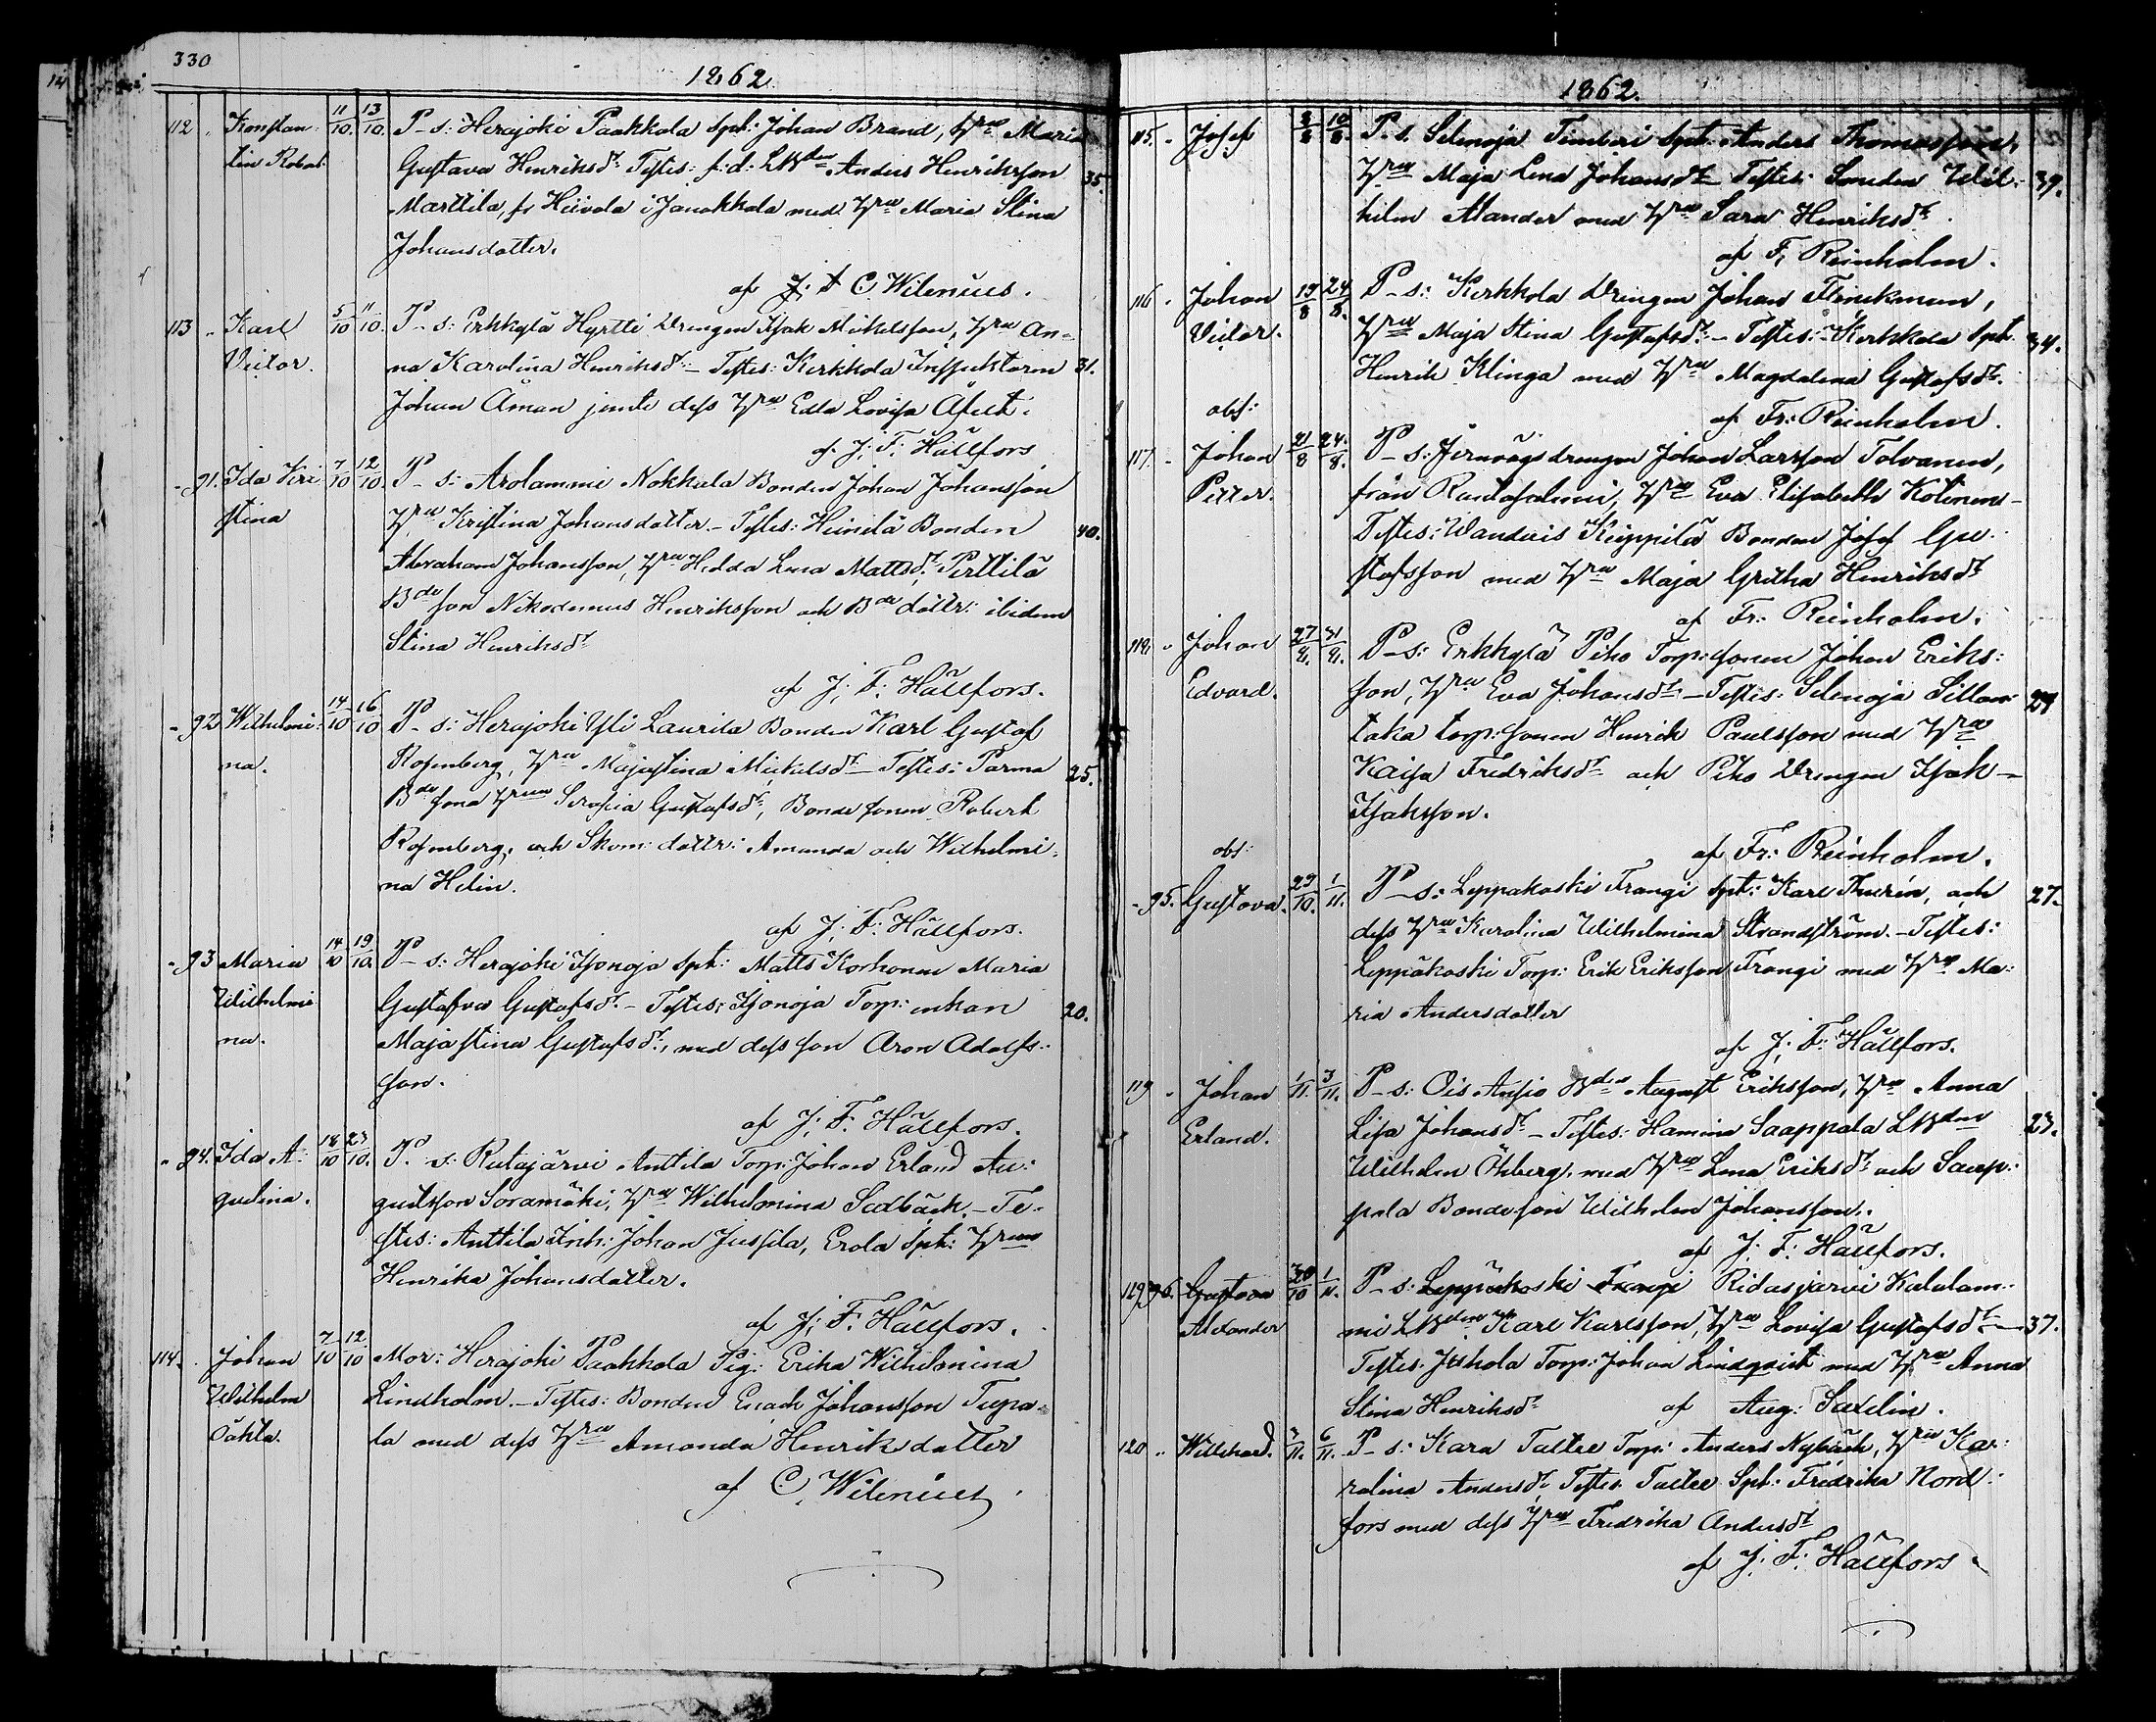 330
1862
112 Konstan- 11/10. 13/10. P-s: Herajoki Paakkola Spt: Johan Brand, Hru Maria
tin Robert Gustava Henriksdr Testes: f:d: LBden Anders Henriksson 35.
Marttila, fr Hiivola i Janakkala med Hru Maria Stina
Johansdotter.
af C Wilenius.
113 Karl 5/10 11/10. P-s: Erkkylä Hyrtti Drengen Isak Mikelsson, Hru An-
Victor. na Karolina Henriksdr - Testes: Kerkkola Inspektoren 31.
Johan Åman jemte dess Hru Edla Lovisa
af J: F: Hällfors
91. Ida Kri 7/10 12/10. P-s: Arolammi Nokkala Bonden Johan Johansson
stina Hru Kristina Johansdotter. - Testes: Heinilä Bonden 40.
Abraham Johansson, Hru Hedda Lena Mattsdr, Perttilä
Bde son Nikodemus Henriksson och Bde dottr: ibidem
Stina Henriksdr
af J: F: Hällfors.
92. Wilhelmi- 14/10 16/10 P-s: Herajoki Yli Laurila Bonden Karl Gustaf
na. Rosenberg, Hru Majastina Mickelsdr - Testes: Parma 25.
Bde sons Hrun Serafia Gustafsdr, Bondesonen Robert
Rosenberg, och Skom: dottr: Amanda och Wilhelmi-
na Helin.
af J: F: Hällfors.
93 Maria 14/10 19/10. P-s: Herajoki Isonoja Spt: Matts Korhonen Maria
Wilhelmi Gustafva Gustafsdr. - Testes: Isonoja Torp: enkan 20.
na. Majastina Gustafsdr, med dess son Aron Adolfs-
son.
af J: F: Hällfors.
94. Ida A: 18/10 23/10. P. s: Rutajärvi Anttila Torp: Johan Erland Au-
gustina. gustsson Soramäki, Hru Wilhelmina Sedbäck. - Te-
stes: Anttila Inh: Johan Jussila, Erola Spt: Hrun
Henrika Johansdotter.
af J: F. Hällfors.
114. Johan 7/10 12/10 Mor: Herajoki Paakkola Pig: Erika Wilhelmina
Wilhelm Lindholm. - Testes: Bonden Enoch Johansson Tupa-
Oäkta. la med dess Hru Amanda Henriksdotter
af C Wilenius.
1862.
115. Josef 3/8 10/8. P-s. Selenoja Timberi Spt: Anders Thomasson,
Hru Maja Lena Johansdr - Testes: Smeden Wil- 39.
helm Alander med Hru Sara Henriksdr.
af F. Reinholm.
116. Johan 19/8 24/8. P-s: Kerkkola Drengen Johan Flinckman,
Victor. Hru Maja Stina Gustafsdr. - Testes: Kerkkola Spt. 34.
Henrik Klinga med Hru Magdalena Gustafsdr.
obs: af Fr: Reinholm.
117. Johan 21/8 24/8. P-s: Jernvägsdrengen Johan Larsson Tolvanen,
Petter. från Rautasalmi, Hru Eva Elisabeth Kotinen -
Testes: Wanderis Keippilä Bonden Josef Gu-
stafsson med Hru Maja Gretha Henriksdr
af Fr: Reinholm.
118. Johan 27/8. 31/8. P-s: Erkkylä Piho Torp: sonen Johan Eriks-
Edvard. son, Hru Eva Johansdr - Testes: Selenoja Sillan- 29
taka torp: sonen Henrik Paulsson med Hru
Kaisa Fredriksdr och Piho Drengen Isak
Isaksson.
obs: af Fr: Reinholm.
95. Gustava. 29/10. 1/11. P-s: Leppäkoski Frangi Spt: Karl Thurén, och 27.
dess Hru Karolina Wilhelmina Strandström. - Testes:
Leppäkoski Torp: Erik Eriksson Frangi med Hru Ma-
ria Andersdotter
af J: F: Hällfors.
119 Johan 1/11. 3/11. P-s: Ois Ansio Bden August Eriksson, Hru Anna
Erland. Lisa Johansdr - Testes: Hamina Saappala LBden 23.
Wilhelm Öhberg, med Hru Lena Eriksdr och Saap-
pala Bondeson Wilhelm Johansson.
af J: F: Hällfors.
119 96. Gustava 30/10 1/11. P-s: Leppäkoski Frangi Ridasjärvi Kalalam-
Alexander mi LBden Karl Karlsson, Hru Lovisa Gustafsdr - 37.
Testes. Torp: Johan Lindqvist med Hru Anna
Stina Henriksdr af Aug: Saxelin.
120 Willehard. 3/11. 6/11. P-s: Kara Taltre Torp: Anders Nybäck, Hru Ka-
rolina Andersdr Testes Taltre Spt: Fredrika Nord-
fors med dess Hru Fredrika Andersdr
af J: F: Hällfors.